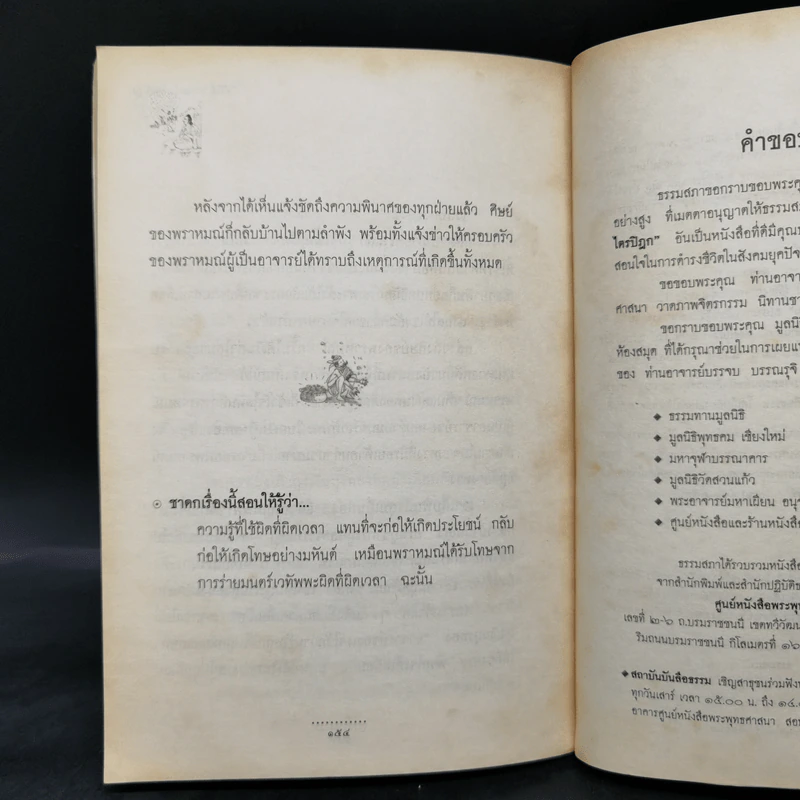 หลังจากได้เห็นแจ้งชัดถึงความพินาศของทุกฝ่ายแล้ว ศิษย์
ของพราหมณ์ก็กลับบ้านไปตามลำพัง พร้อมทั้งแจ้งข่าวให้ครอบครัว
ของพราหมณ์ผู้เป็นอาจารย์ได้ทราบถึงเหตุการณ์ที่เกิดขึ้นทั้งหมด
ชาดกเรื่องนี้สอนให้รู้ว่า...
ความรู้ที่ใช้ผิดที่ผิดเวลา แทนที่จะก่อให้เกิดประโยชน์ กลับ
ก่อให้เกิดโทษอย่างมหันต์ เหมือนพราหมณ์ได้รับโทษจาก
การร่ายมนตร์เวทัพพะผิดที่ผิดเวลา ฉะนั้น
๑๕๔
คำขอ
ธรรมสภาขอกราบขอบพระคุ
อย่างสูง ที่เมตตาอนุญาตให้ธรรมส
ไตรปิฎก" อันเป็นหนังสือที่ดีมีคุณ
สอนใจในการดำรงชีวิตในสังคมยุคปัจ
ขอขอบพระคุณ ท่านอาจา
ศาสนา วาดภาพจิตรกรรม นิทานชา
ขอกราบขอบพระคุณ มูลนิ
ห้องสมุด ที่ได้กรุณาช่วยในการเผยแ
ของ ท่านอาจารย์บรรจบ บรรณรุจิ
◆ ธรรมทานมูลนิธิ
◆ มูลนิธิพุทธคม เชียงใหม่
◆ มหาจุฬาบรรณาคาร
◆ มูลนิธิวัดสวนแก้ว
◆ พระอาจารย์มหาเฝียน อนุ
◆ ศูนย์หนังสือและร้านหนังสือ
ธรรมสภาได้รวบรวมหนังสื
จากสำนักพิมพ์และสำนักปฏิบัติ
ศูนย์หนังสือพระพุ
เลขที่ ๒-๖ ถ.บรมราชชนนี เขตทวีวัฒ
ริมถนนบรมราชชนนี กิโลเมตรที่ ๑๖
◆ สถาบันบันลือธรรม เชิญสาธุชนร่วมฟัง
ทุกวันเสาร์ เวลา ๑๕.๐๐ น. ถึง ๑๘.
อาคารศูนย์หนังสือพระพุทธศาสนา